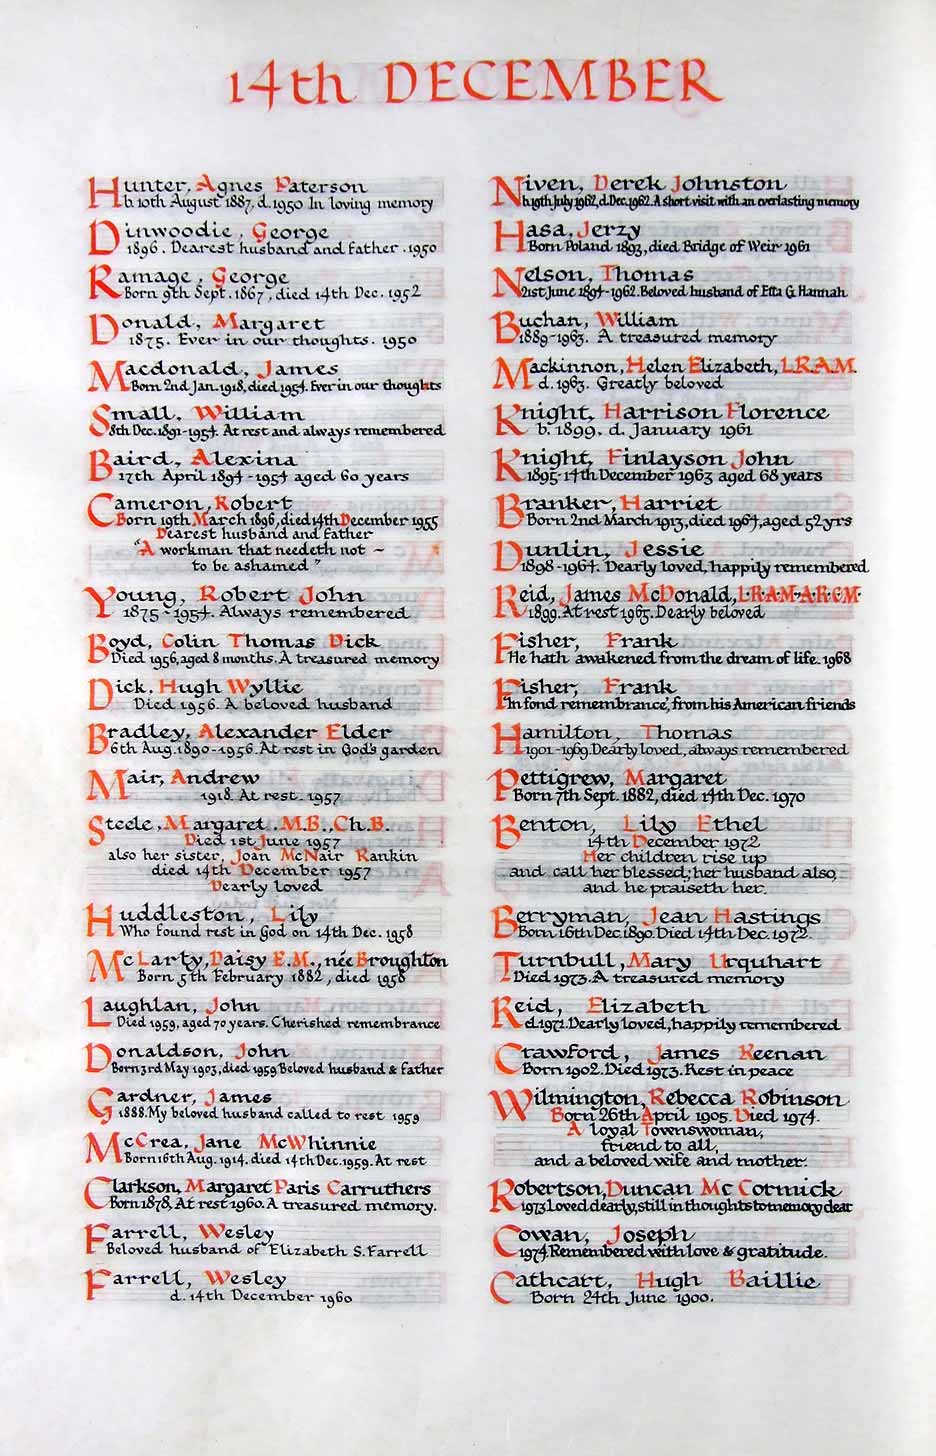 14th DECEMBER
Hunter, Agnes Paterson
b. 10th August 1887, d. 1950 In loving memory
Dinwoodie, George
1896. Dearest husband and father. 1950
Ramage, George
Born 9th Sept. 1867, died 14th Dec. 1952
Donald, Margaret
1875. Ever in our thoughts. 1950
Macdonald, James
Born 2nd Jan. 1918, died 1954. Ever in our thoughts
Small, William
8th Dec. 1891-1954. At rest and always remembered
Baird, Alexina
17th April 1894-1954 aged 60 years
Cameron, Robert
Born 19th March 1896, died 14th December 1955
Dearest husband and father
"A workman that needeth not ~
to be ashamed"
Young, Robert John
1875-1954. Always remembered
Boyd, Colin Thomas Dick
Died 1956, aged 8 months. A treasured memory
Dick, Hugh Wyllie
Died 1956. A beloved husband
Bradley, Alexander Elder
6th Aug. 1890-1956. At rest in God's garden
Mair, Andrew
1918. At rest. 1957
Steele, Margaret. M.B., Ch.B.
Died 1st June 1957
also her sister, Joan McNair Rankin
died 14th December 1957
Dearly loved
Huddleston, Lily
Who found rest in God on 14th Dec. 1958
McLarty, Daisy E.M., née Broughton
Born 5th February 1882, died 1958
Laughlan, John
Died 1959, aged 70 years. Cherished remembrance
Donaldson, John
Born 3rd May 1903, died 1959 Beloved husband & father
Gardner, James
1888. My beloved husband called to rest 1959
McCrea, Jane McWhinnie
Born 16th Aug. 1914. died 14th Dec. 1959. At rest
Clarkson, Margaret Paris Carruthers
Born 1878, At rest 1960. A treasured memory.
Farrell, Wesley
Beloved husband of Elizabeth S. Farrell
Farrell, Wesley
d. 14th December 1960
Niven, Derek Johnston
b. 19th July 1962, d. Dec. 1962. A short visit with an everlasting memory
Hasa, Jerzy
Born Poland 1893, died Bridge of Weir 1961
Nelson, Thomas
21st June 1894-1962. Beloved husband of Etta G. Hannah
Buchan, William
1889-1963. A treasured memory
Mackinnon, Helen Elizabeth, L.R.A.M.
d. 1963. Greatly beloved
Knight, Harrison Florence
b. 1899. d. January 1961
Knight, Finlayson John
1895-14th December 1963 aged 68 years
Branker, Harriet
Born 2nd March 1913, died 1964, aged 52 yrs
Dunlin, Jessie
1898-1964. Dearly loved, happily remembered
Reid, James McDonald, L.R.A.M. A.R.C.M.
1899. At rest 1965. Dearly beloved
Fisher, Frank
He hath awakened from the dream of life. 1968
Fisher, Frank
'In fond remembrance', from his American friends
Hamilton, Thomas
1901-1969. Dearly loved, always remembered
Pettigrew, Margaret
Born 7th Sept. 1882, died 14th Dec. 1970
Benton, Lily Ethel
14th December 1972
Her children rise up
and call her blessed; her husband also,
and he praiseth her.
Berryman, Jean Hastings
Born 16th Dec. 1890. Died 14th Dec. 1972.
Turnbull, Mary Urquhart
Died 1973. A treasured memory
Reid, Elizabeth
d. 1971. Dearly loved, happily remembered
Crawford, James Keenan
Born 1902. Died 1973. Rest in peace
Wilmington, Rebecca Robinson
Born 26th April 1905. Died 1974.
A loyal Townswoman,
friend to all,
and a beloved wife and mother.
Robertson, Duncan McCormick
1973 Loved dearly, still in thoughts to memory dear
Cowan, Joseph
1974. Remembered with love & gratitude.
Cathcart, Hugh Baillie
Born 24th June 1900.